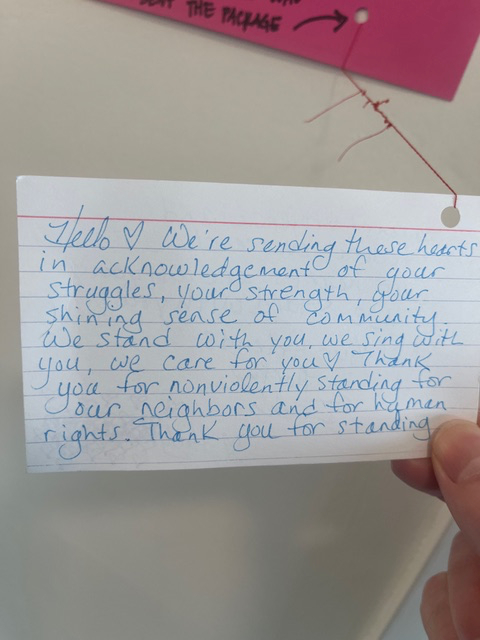 THE PACKAGE
Hello ♡ We're sending these hearts
in acknowledgement of your
struggles, your strength, your
shining sense of community.
We stand with you, we sing with
you, we care for you ♡ Thank
you for nonviolently standing for
our neighbors and for human
rights. Thank you for standing